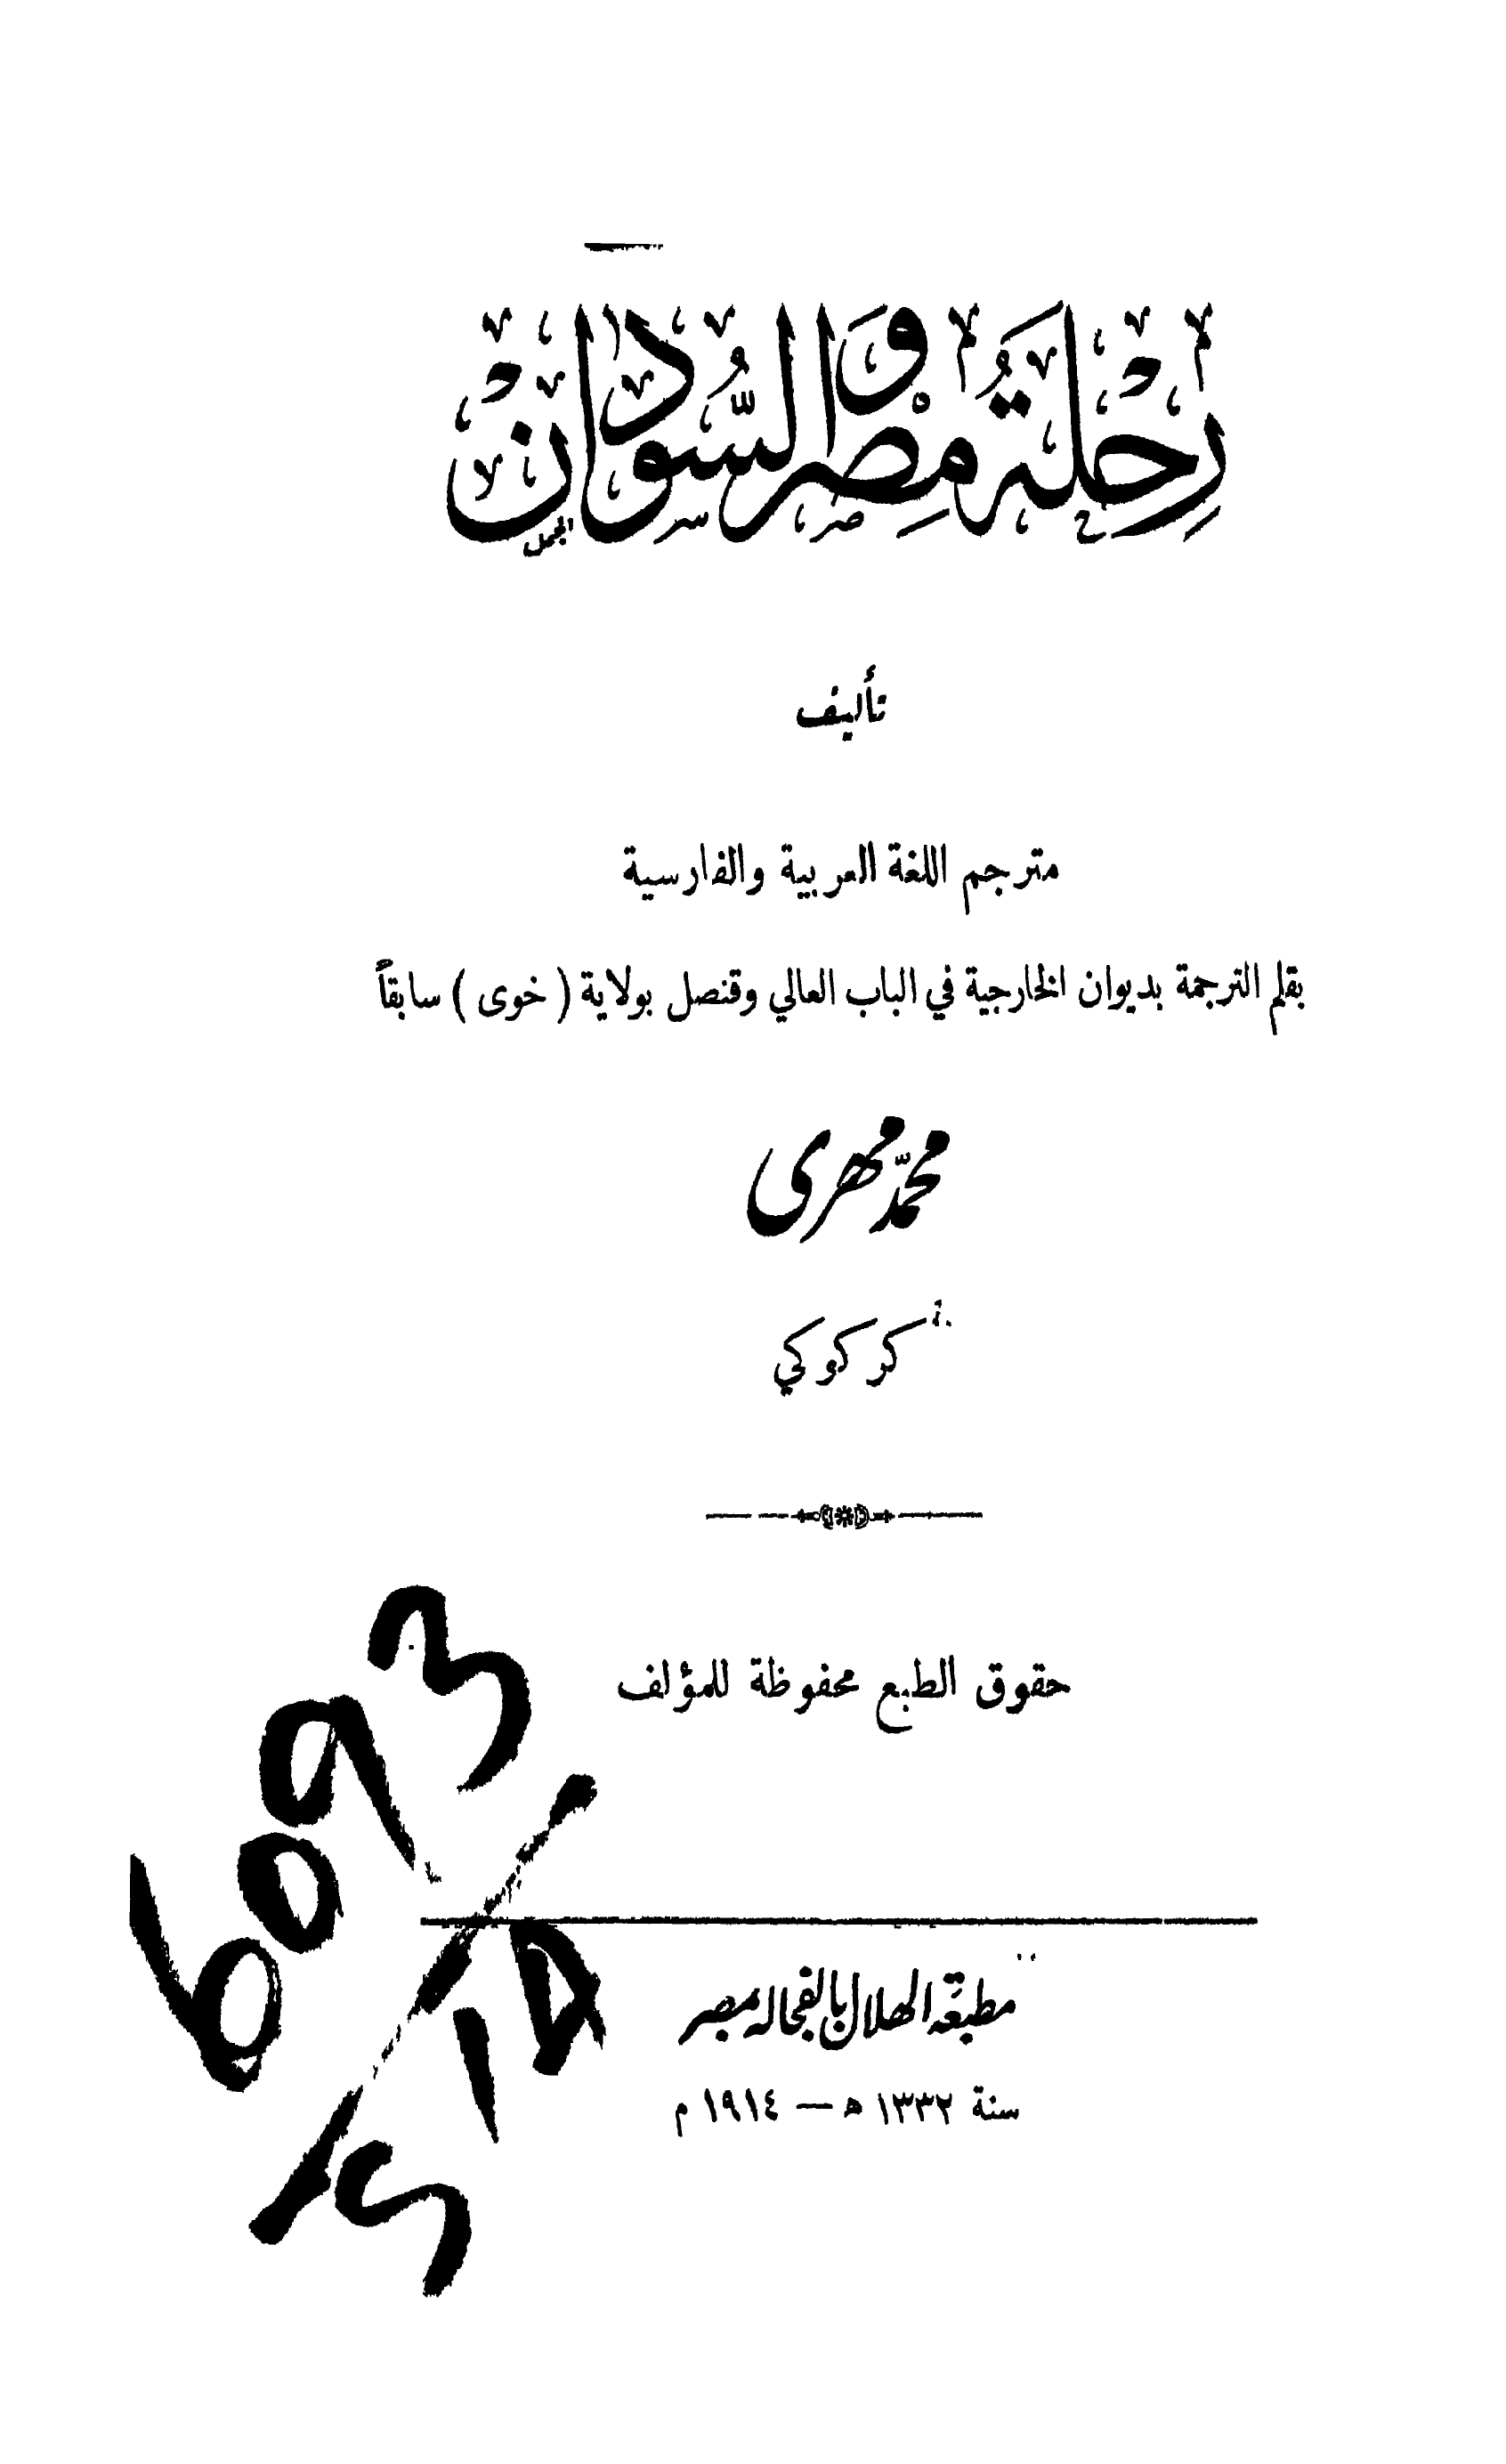 رحلة مصر والسودان
تأليف
مترجم اللغة العربية والفارسية
بقلم الترجمة بديوان الخارجية في الباب العالي وقنصل بولاية ( خوى ) سابقاً
محمد مهرى
كركوكي
حقوق الطبع محفوظة للمؤلف
6093
مطبعة الهلال بالفجالة بمصر
سنة ١٣٣٢ ه — ١٩١٤ م